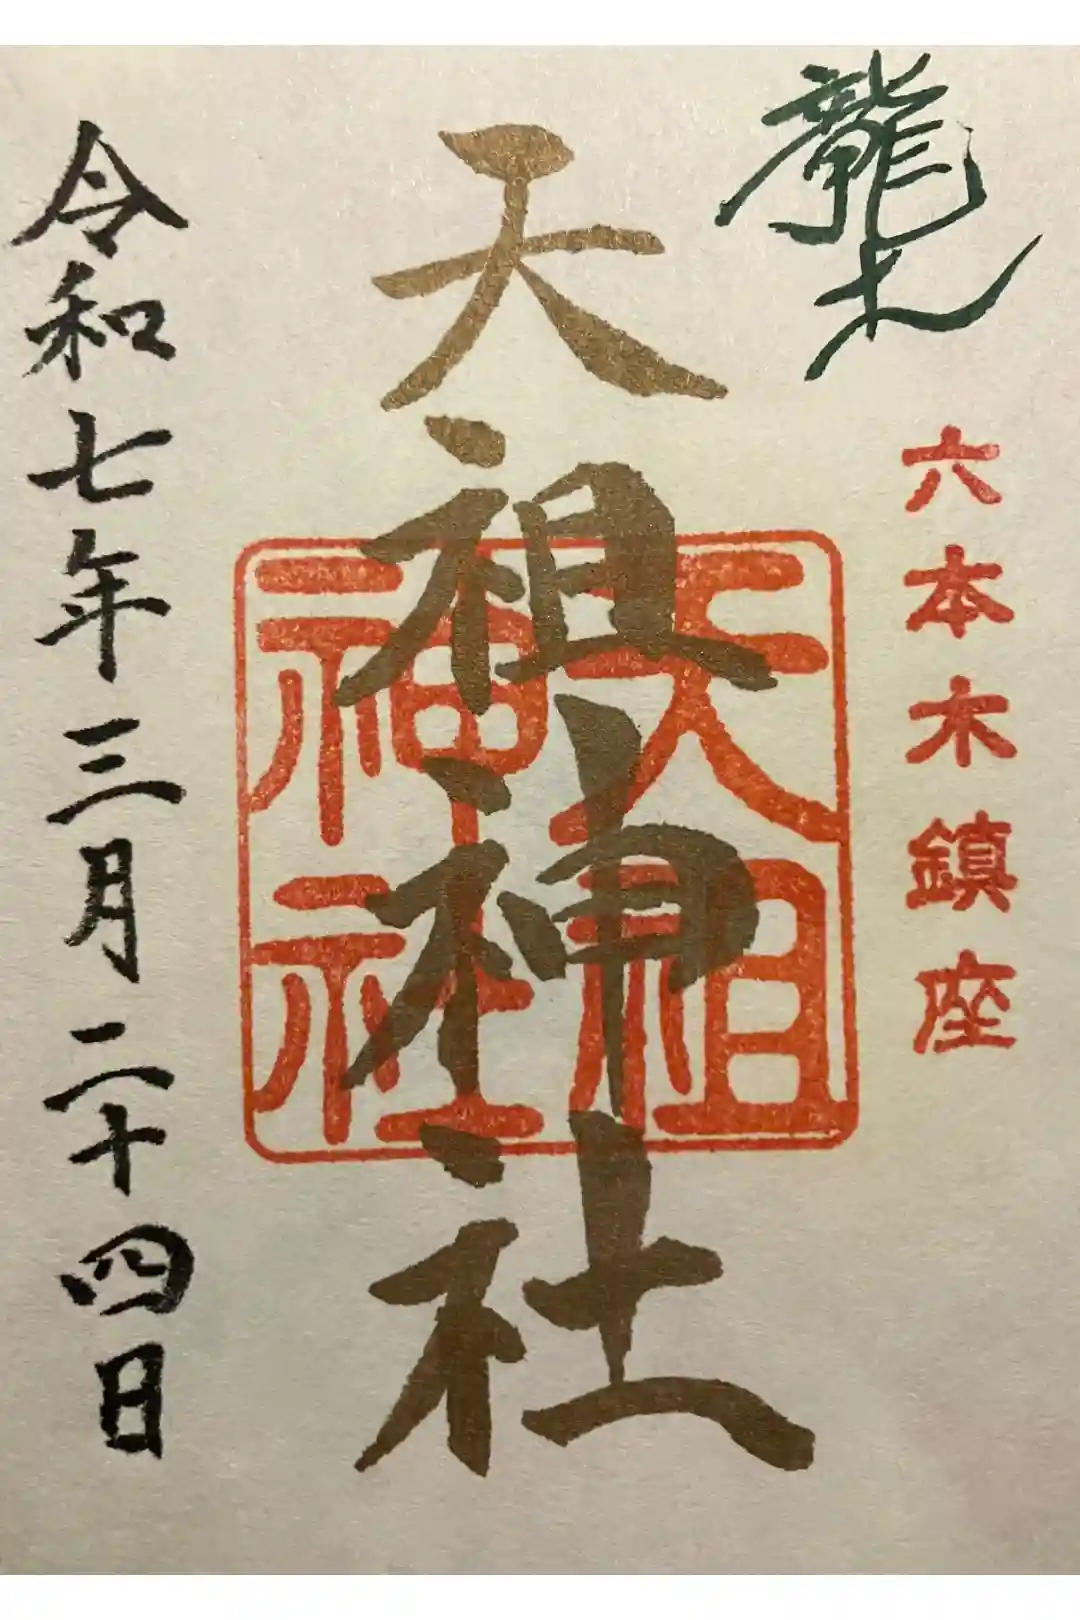 龍土
六本木鎮座
天祖神社
天祖
神社
令和七年三月二十四日